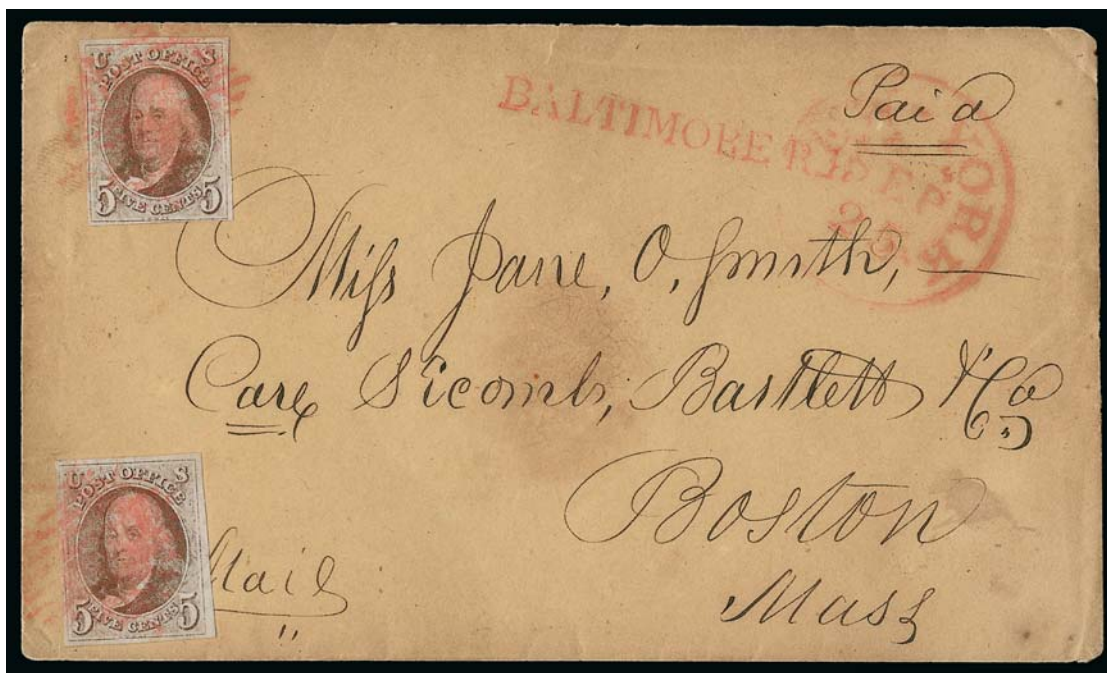 U S
POST OFFICE
5 FIVE CENTS 5
BALTIMORE R.
YORK
SEP
25
Paid
Miss Jane, O, Smith,
Care Sicomb, Bartlett & Co
Boston
Mass
Mail
U S
POST OFFICE
5 FIVE CENTS 5